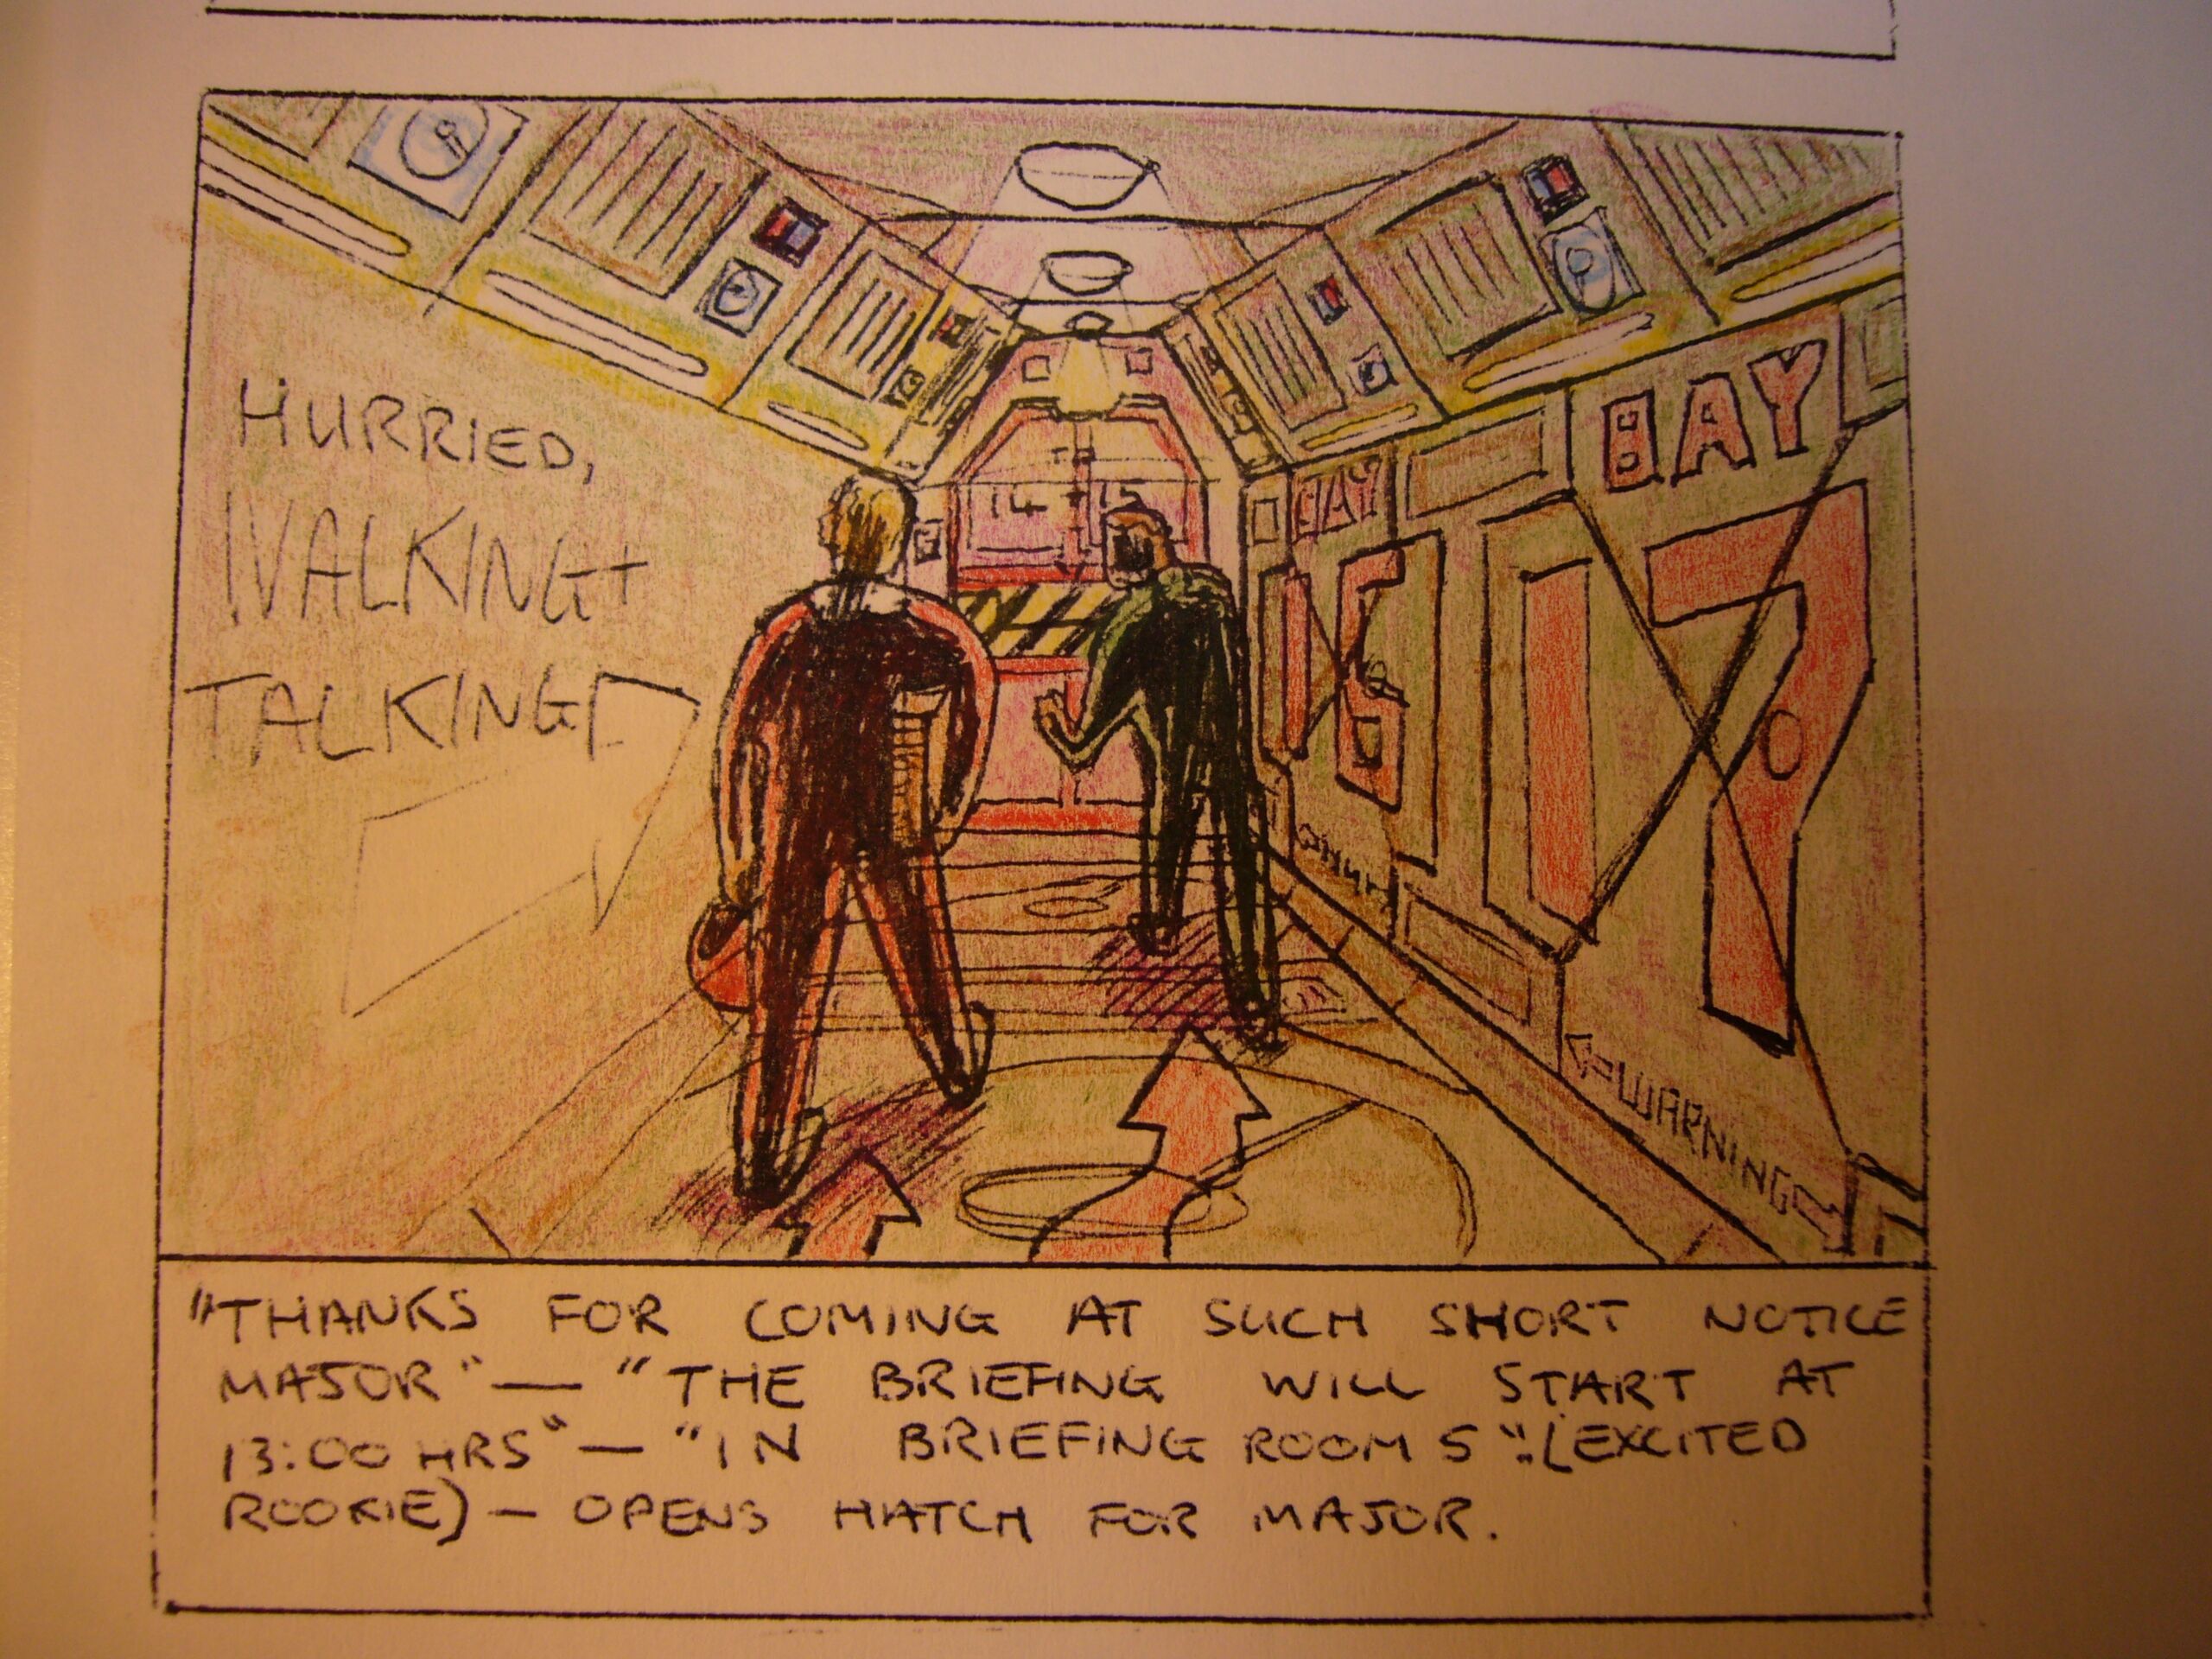 HURRIED,
WALKING +
TALKING
14 + 15
BAY
16
BAY
17
WARNING
"THANKS FOR COMING AT SUCH SHORT NOTICE
MAJOR" — "THE BRIEFING WILL START AT
13:00 HRS" — "IN BRIEFING ROOM 5". (EXCITED
ROOKIE) — OPENS HATCH FOR MAJOR.